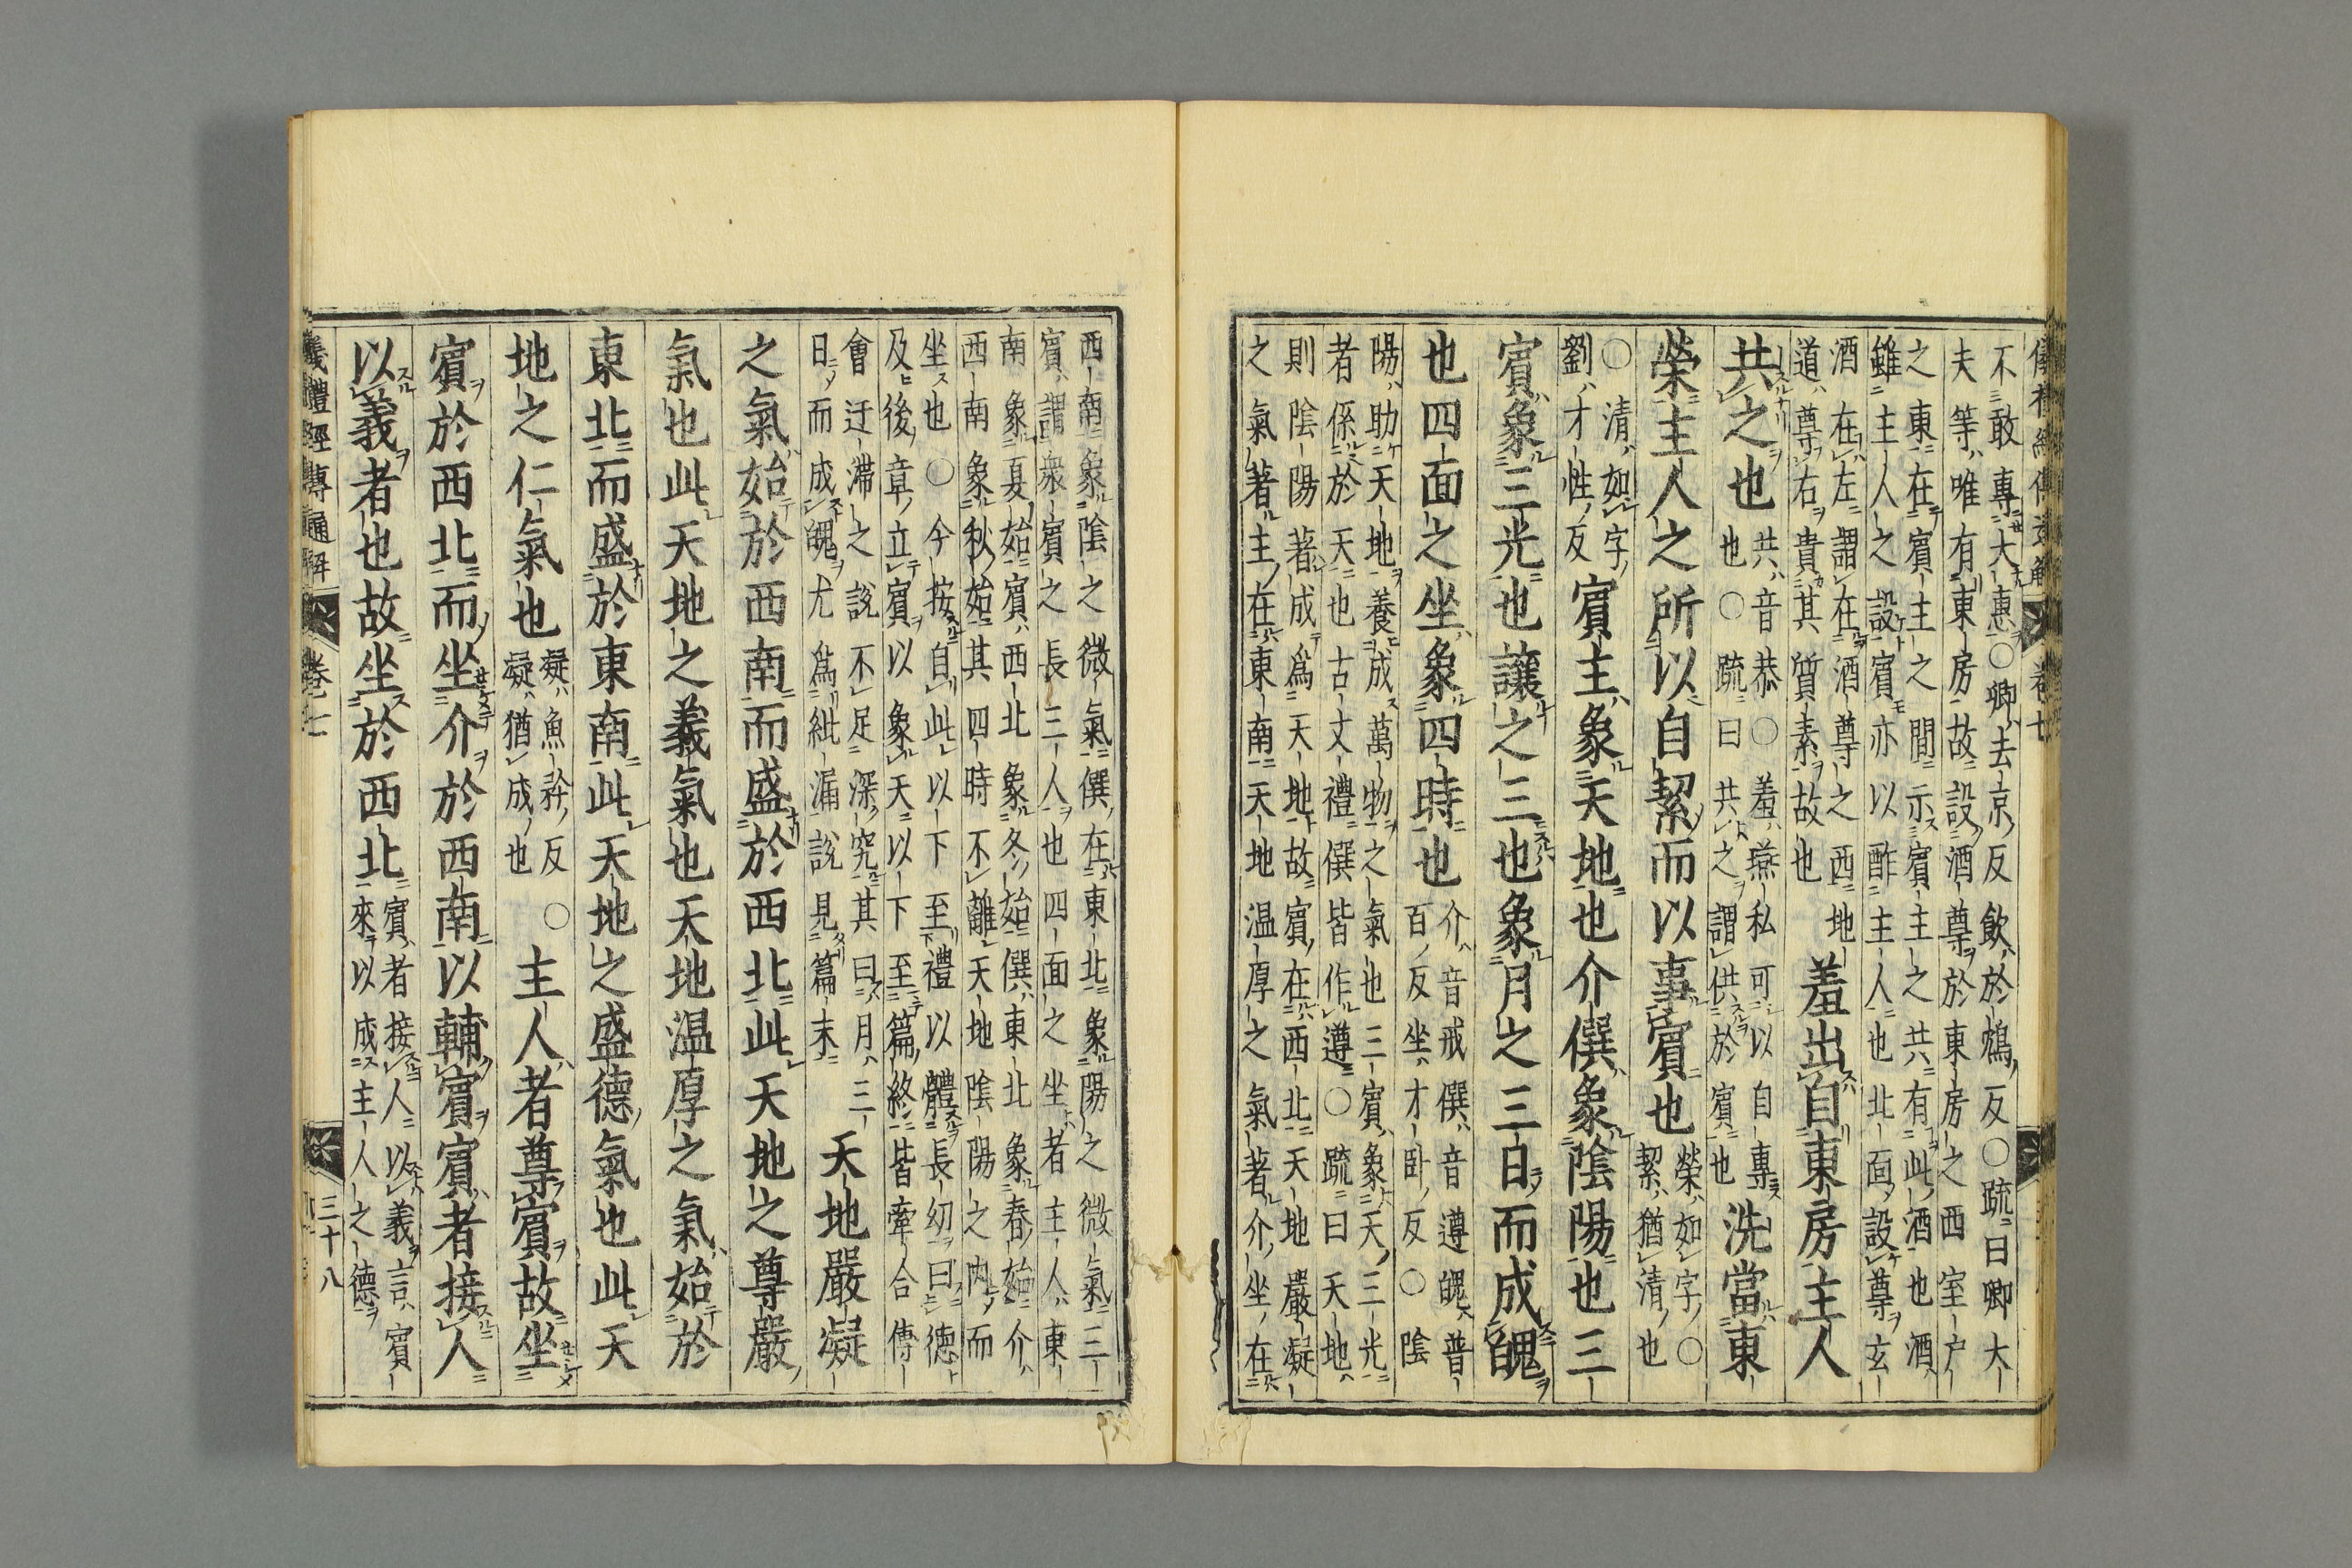 不敢專大惠○卿去京反飲於鴆反○疏曰卿大
夫等唯有東房故設酒尊於東房之西室戶
之東在賓主之間示賓主之共有此酒也酒
雖主人之設賓亦以酢主人也北面設尊玄
酒在左謂在酒尊之西地
道尊右貴其質素故也
羞出自東房主人
共之也
共音恭○羞燕私可以自專
也○疏曰共之謂供於賓也
洗當東
榮主人之所以自絜而以事賓也
榮如字○
絜猶清也
○清如字
劉才性反
賓主象天地也介僎象陰陽也三
賓象三光也讓之三也象月之三日而成魄
也四面之坐象四時也
介音戒僎音遵魄普
百反坐才卧反○陰
陽助天地養成萬物之氣也三賓象天三光
者係於天也古文禮僎皆作遵○疏曰天地
則陰陽著成爲天地故賓在西北天地嚴凝
之氣著主在東南天地温厚之氣著介坐在
西南象陰之微氣僎在東北象陽之微氣三
賓謂衆賓之長三人也四面之坐者主人東
南象夏始賓西北象冬始僎東北象春始介
西南象秋始其四時不離天地陰陽之內而
坐也○今按自此以下至禮以體長幼曰德
及後章立賓以象天以下至篇終皆牽合傅
會迂滯之說不足深究其曰月三
日而成魄尤爲紕漏說見篇末
天地嚴凝
之氣始於西南而盛於西北此天地之尊嚴
氣也此天地之義氣也天地温厚之氣始於
東北而盛於東南此天地之盛德氣也此天
地之仁氣也
凝魚矜反
凝猶成也
○主人者尊賓故坐
賓於西北而坐介於西南以輔賓賓者接人
以義者也故坐於西北
賓者接人以義言賓
來以成主人之德
儀禮經傳通解
卷七
三十八